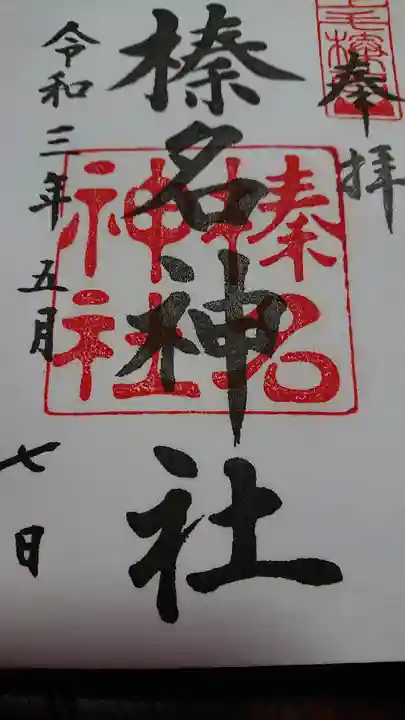 奉拝
榛名神社
榛名
神社
令和三年五月七日